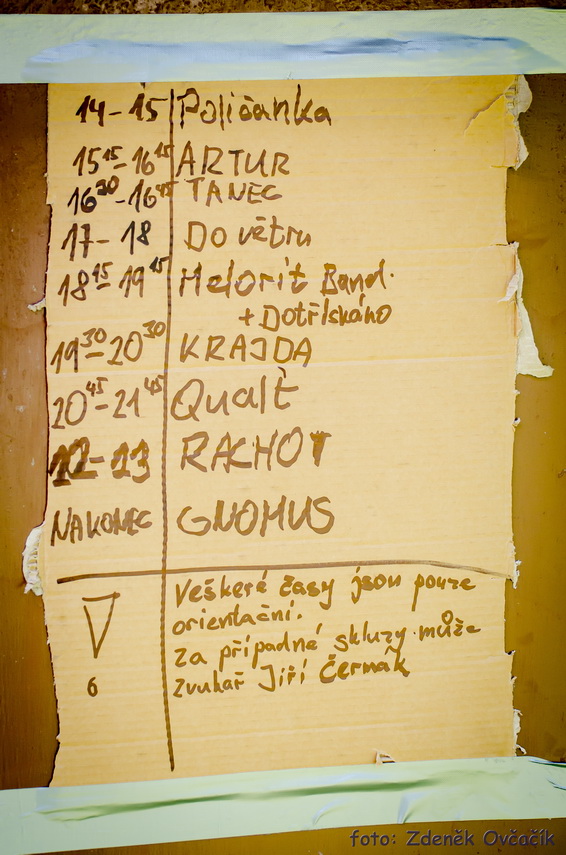 14-15 Poličanka
15¹⁵-16¹⁵ ARTUR
16³⁰-16⁴⁵ TANEC
17-18 Do větru
18¹⁵-19¹⁵ Melorit Band.
+ Dotřískáno
19³⁰-20³⁰ KRAJDA
20⁴⁵-21⁴⁵ Qualt
22-23 RACHOT
NAKONEC GNOMUS
Veškeré časy jsou pouze
orientační.
Za případné skluzy může
zvukař Jiří Čermák
6
foto: Zdeněk Ovčačík